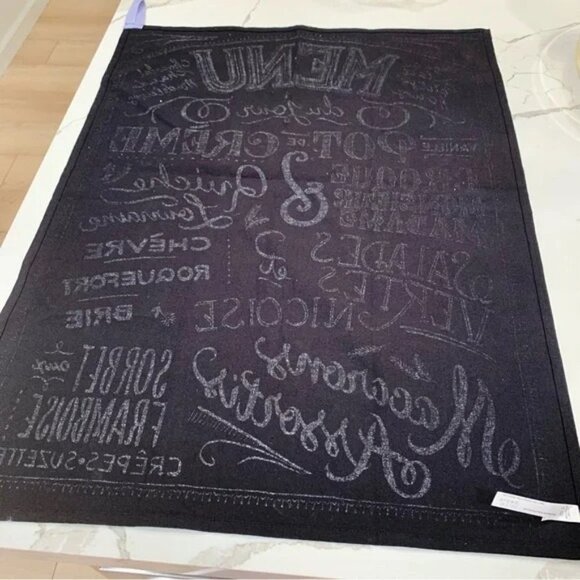 MENU
du jour
POT DE CRÈME
VANILLE
Quiche
Lorraine
&
CROQUE
MONSIEUR
MADAME
CHÈVRE
ROQUEFORT
& BRIE
SALADES
VERTES
et
NICOISE
Macarons
Assortis
SORBET
aux
FRAMBOISE
CRÊPES • SUZETTE